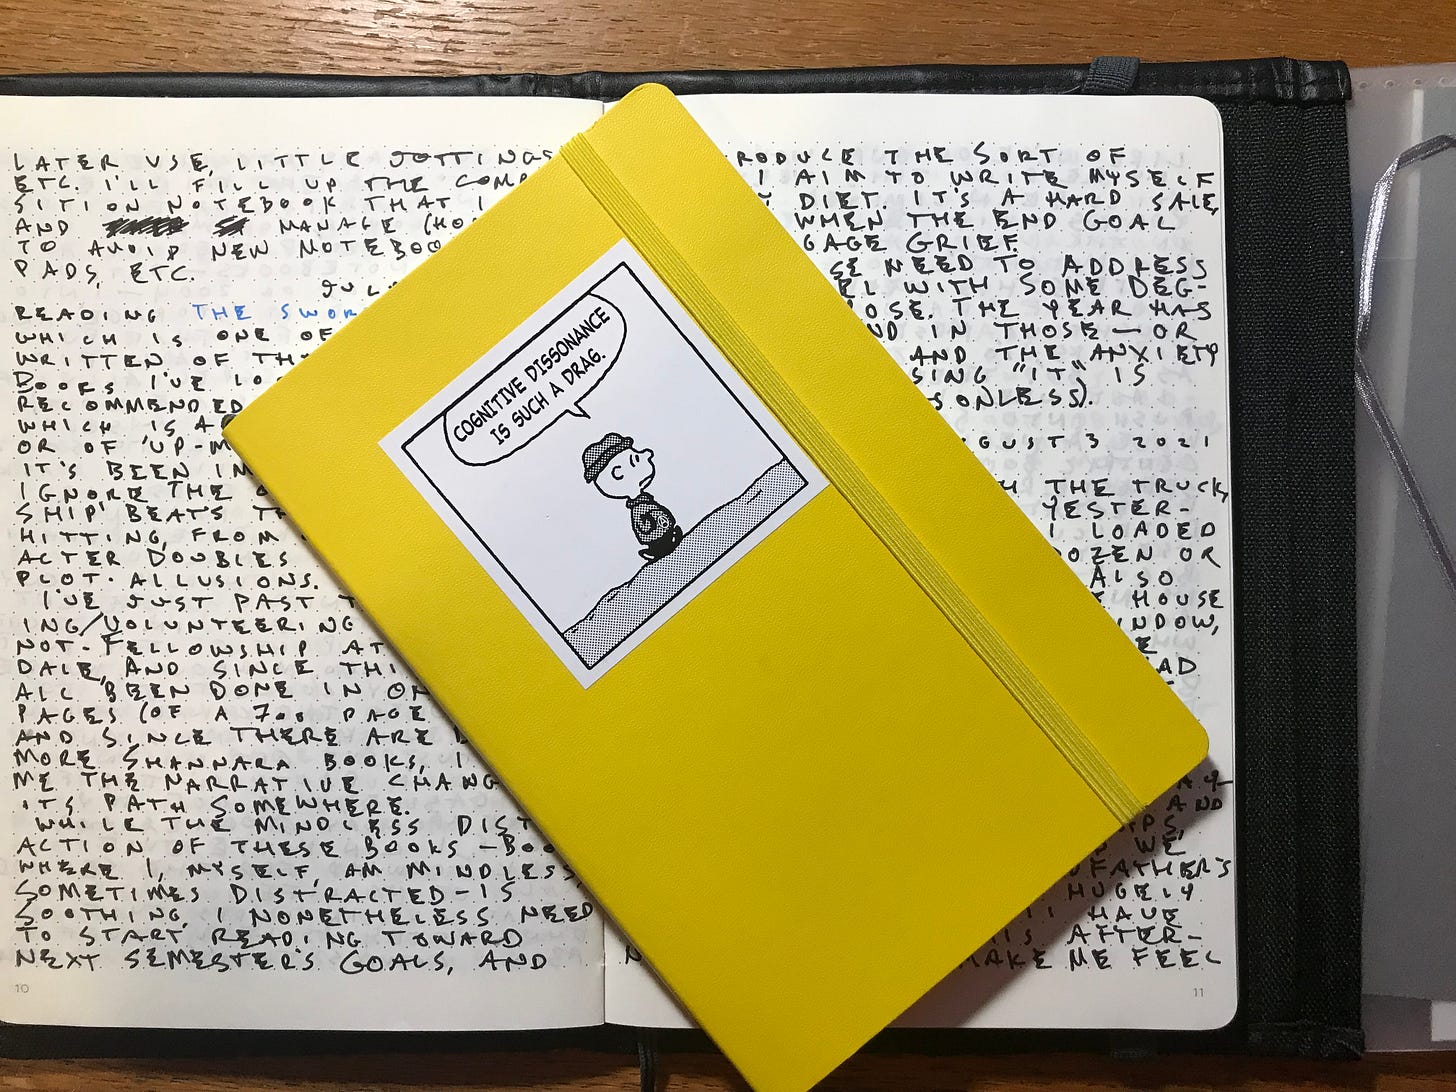 LATER USE, LITTLE JOTTINGS
ETC. I'LL FILL UP THE COMP
SITION NOTEBOOK THAT I
AND MANAGE (HO
TO AVOID NEW NOTEBOO
PADS, ETC.
JUL
READING THE SWOR
WHICH IS ONE OF
WRITTEN OF TH
BOOKS I'VE LO
RECOMMENDED
WHICH IS A
OR OF 'UP-M
IT'S BEEN IM
IGNORE THE
SHIP' BEATS T
HITTING, FROM
ACTER DOUBLES
PLOT. ALLUSIONS.
I'VE JUST PAST T
ING/VOLUNTEERING
NOT-FELLOWSHIP AT
DALE, AND SINCE THI
ALL BEEN DONE IN ON
PAGES (OF A 700 PAGE
AND SINCE THERE ARE
MORE SHANNARA BOOKS, I
ME THE NARRATIVE CHANG
ITS PATH SOMEWHERE.
WHILE THE MINDLESS DIST
ACTION OF THESE BOOKS - BOO
WHERE I, MYSELF, AM MINDLESS,
SOMETIMES DISTRACTED - IS
SOOTHING, I NONETHELESS NEED
TO START READING TOWARD
NEXT SEMESTER'S GOALS, AND
10
COGNITIVE DISSONANCE
IS SUCH A DRAG.
RODUCE THE SORT OF
I AIM TO WRITE MYSELF
Y DIET. IT'S A HARD SALE,
WHEN THE END GOAL
GAGE GRIEF.
SE NEED TO ADDRESS
EL WITH SOME DEG-
OSE. THE YEAR HAS
ND IN THOSE — OR
AND THE ANXIETY
SING "IT" IS
SONLESS).
GUST 3 2021
H THE TRUCK,
YESTER-
I LOADED
OZEN OR
ALSO
E HOUSE
INDOW,
E
AD
AY-
AND
PS,
WE
FATHER'S
HUGELY
I HAVE
IS AFTER-
MAKE ME FEEL
11